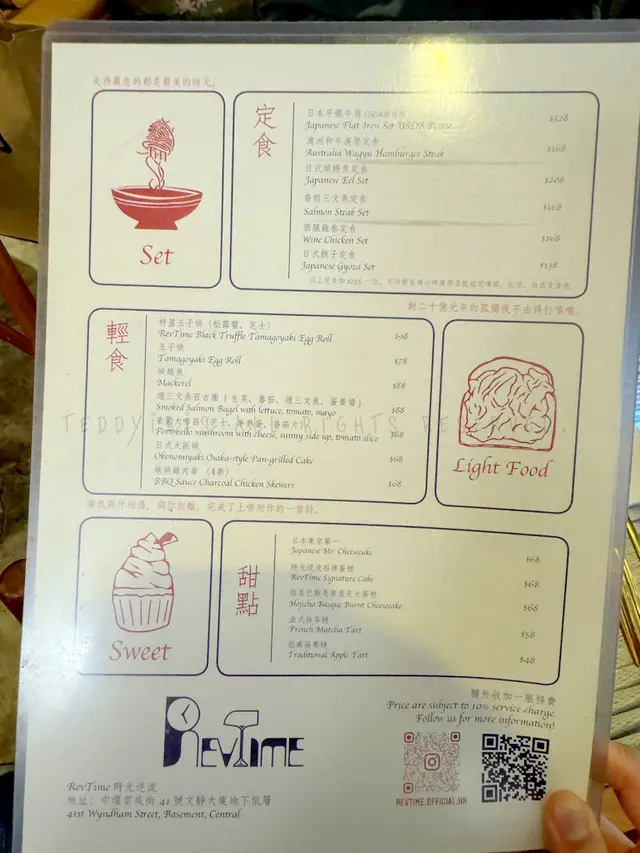 定食
日本平鐵牛肩 USDA
Japanese Flat Iron Set USDA Prime
$528
澳洲和牛漢堡定食
Australia Wagyu Hamburger Steak
$168
日式燒鰻魚定食
Japanese Eel Set
$208
香煎三文魚定食
Salmon Steak Set
$168
酒釀雞卷定食
Wine Chicken Set
$168
日式餃子定食
Japanese Gyoza Set
$138
Set
對二十億光年的孤獨我不由得打噴嚏。
輕食
特濃玉子燒（松露醬、芝士）
RevTime Black Truffle Tamagoyaki Egg Roll
$98
玉子燒
Tamagoyaki Egg Roll
$78
燒鯖魚
Mackerel
$88
煙三文魚百吉圈（生菜、番茄、煙三文魚、蛋黃醬）
Smoked Salmon Bagel with lettuce, tomato, mayo
$88
Portobello mushroom with cheese, sunny side up, tomato slice
$68
日式大阪燒
Okonomiyaki Osaka-style Pan-grilled Cake
$68
燒雞肉串（4串）
BBQ Sauce Charcoal Chicken Skewers
$68
Light Food
讓我與你相遇，與你別離，完成了上帝所作的一首詩。
甜點
日本東京第一
Japanese Mr. Cheesecake
$68
時光逆流招牌蛋糕
RevTime Signature Cake
$68
焙茶巴斯克焦香芝士蛋糕
Hojicha Basque Burnt Cheesecake
$68
法式抹茶撻
French Matcha Tart
$58
經典蘋果撻
Traditional Apple Tart
$48
Sweet
額外收加一服務費
Price are subject to 10% service charge.
Follow us for more information!
REVTIME
REVTIME.OFFICIAL.HK
RevTime 時光逆流
地址：中環雲咸街 41 號文靜大廈地下低層
41st Wyndham Street, Basement, Central